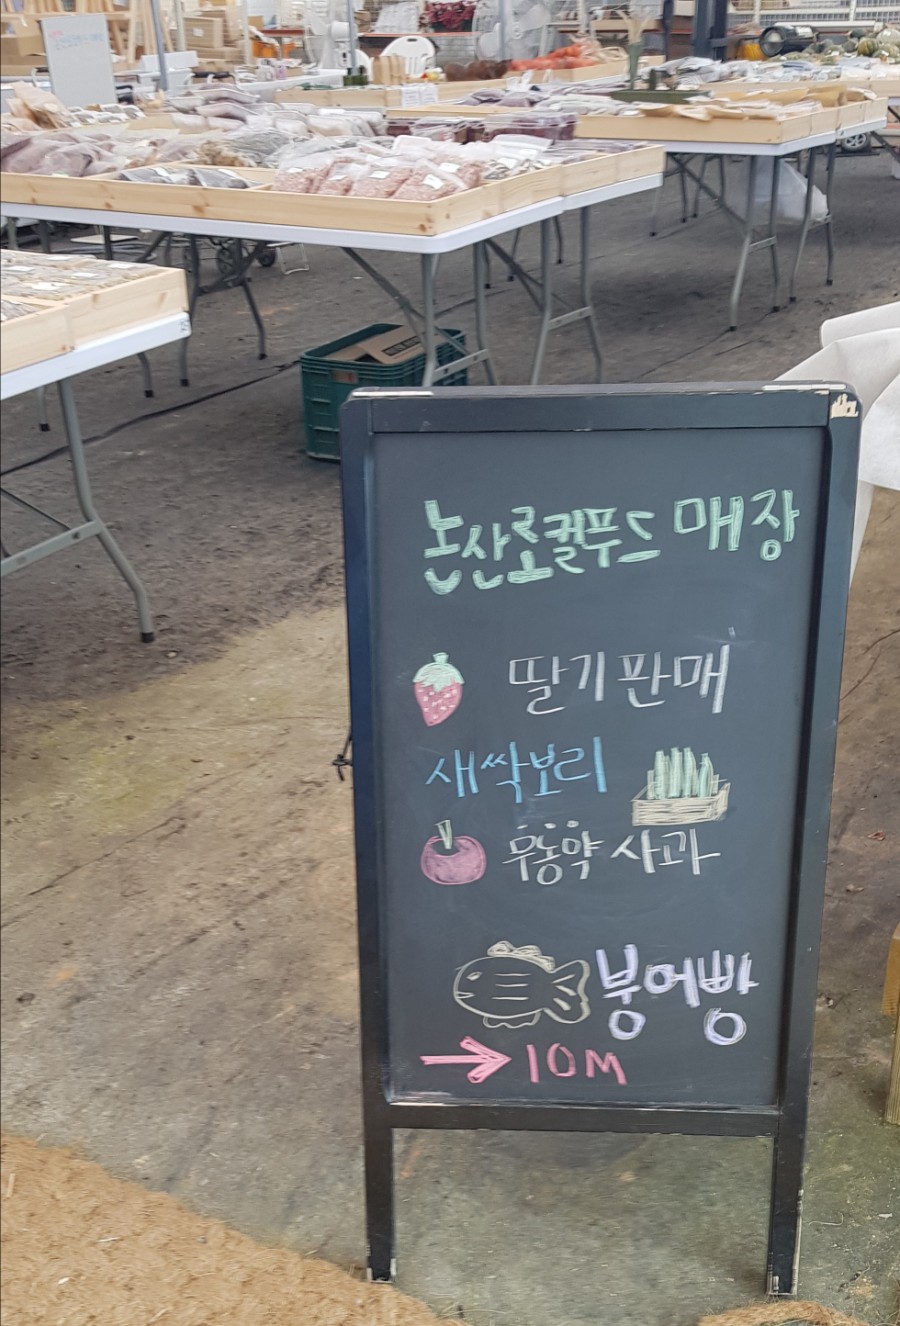 논산로컬푸드 매장
딸기판매
새싹보리
무농약 사과
붕어빵
→ 10M